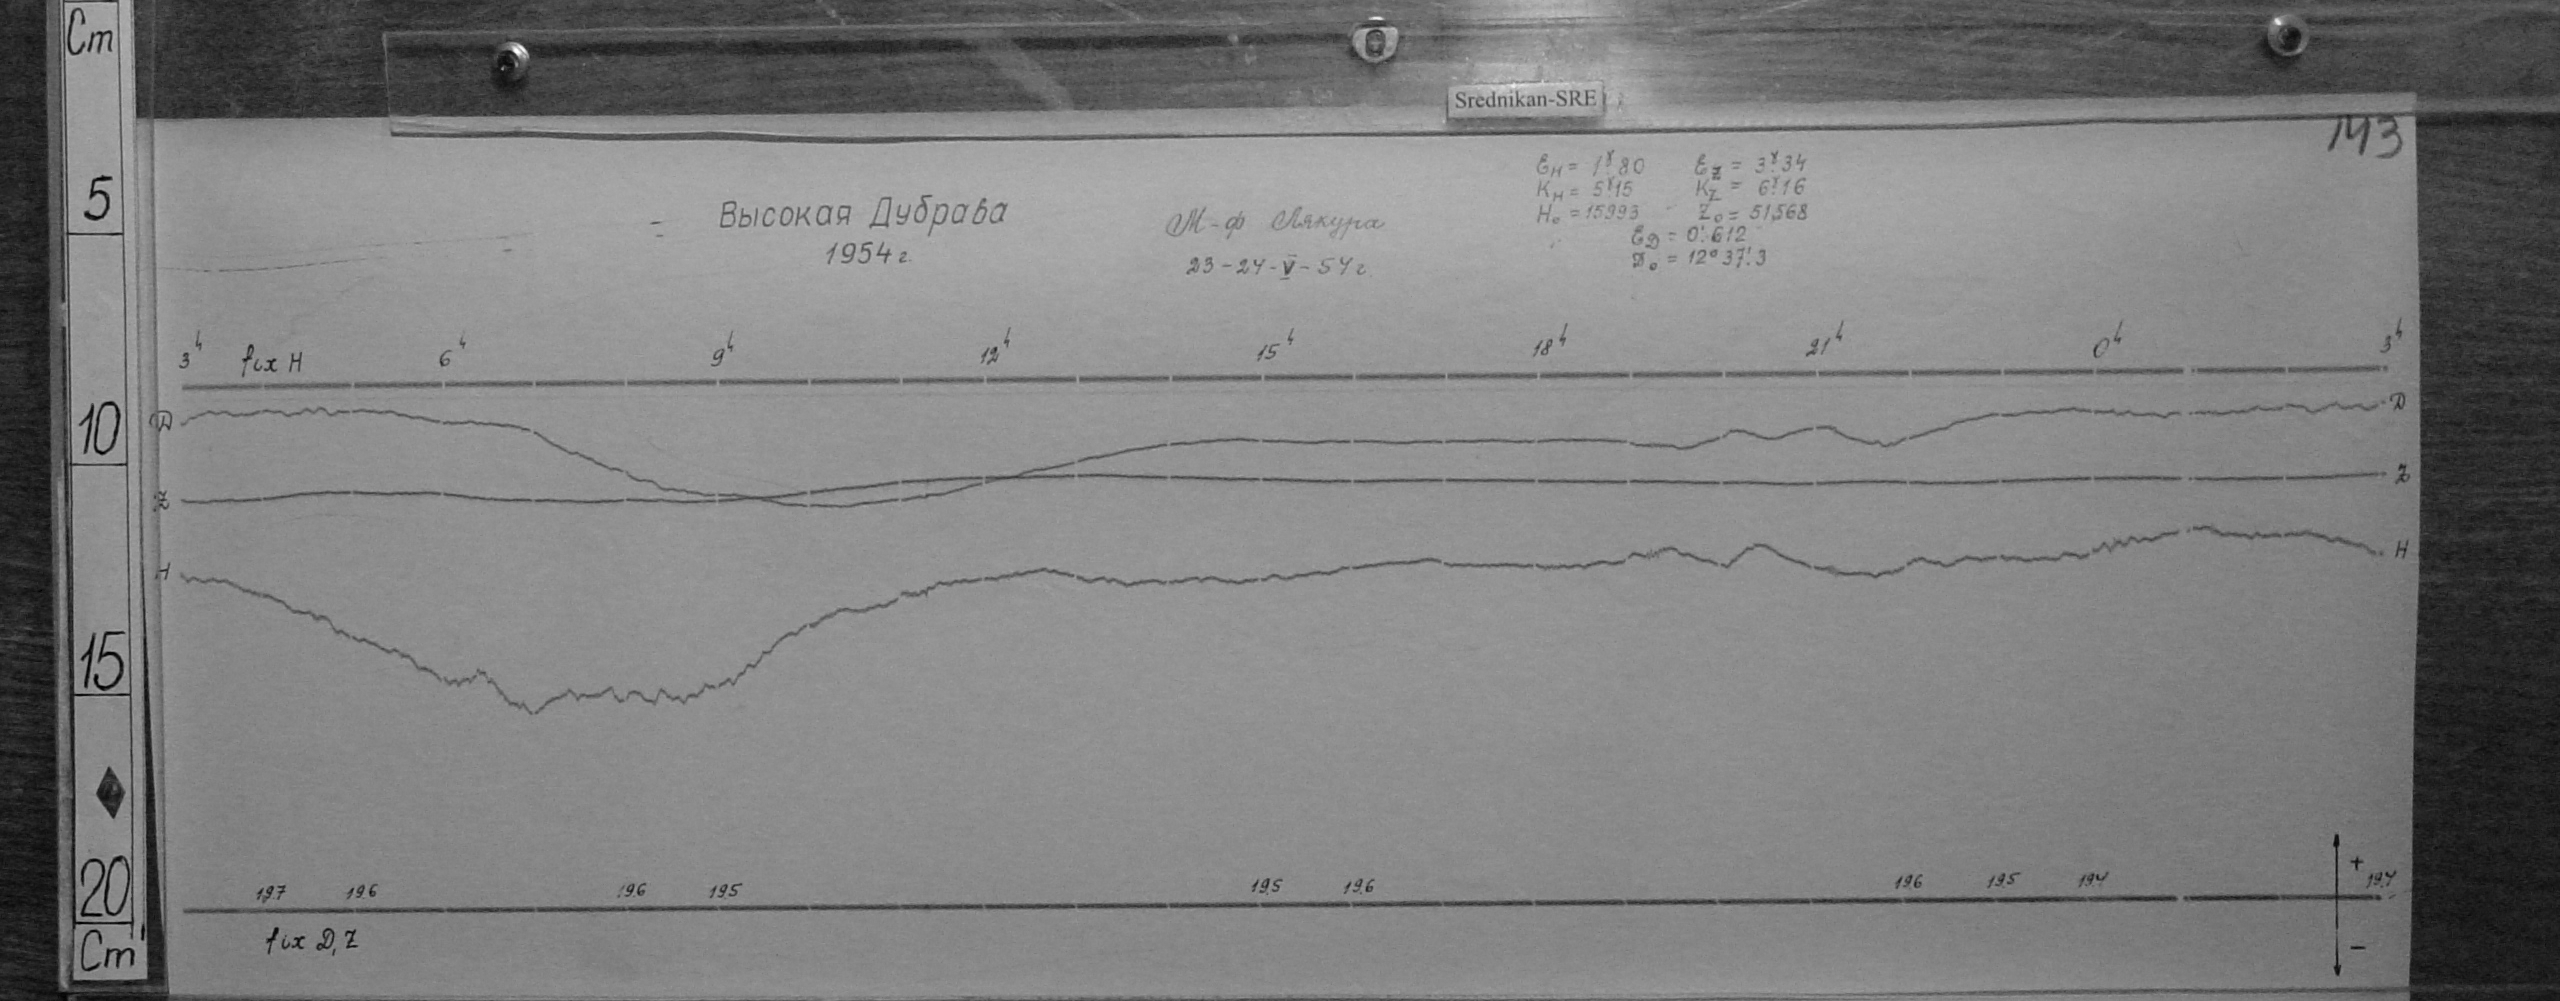 Cm
5
10
15
20
Cm
Srednikan-SRE
143
Высокая Дубрава
1954 г.
М-ф Лякура
23-24-V-54 г.
Ен = 1ˠ.80 Еz = 3ˠ.34
Кн = 5ˠ.15 Кz = 6ˠ.16
Н₀ = 15993 Z₀ = 51,568
ЕД = 0'.612
Д₀ = 12° 37'.3
3ч fix H 6ч 9ч 12ч 15ч 18ч 21ч 0ч 3ч
Д Д
Z Z
H H
19.7 19.6 19.6 19.5 19.5 19.6 19.6 19.5 19.4 19.4
+
fix Д, Z
-